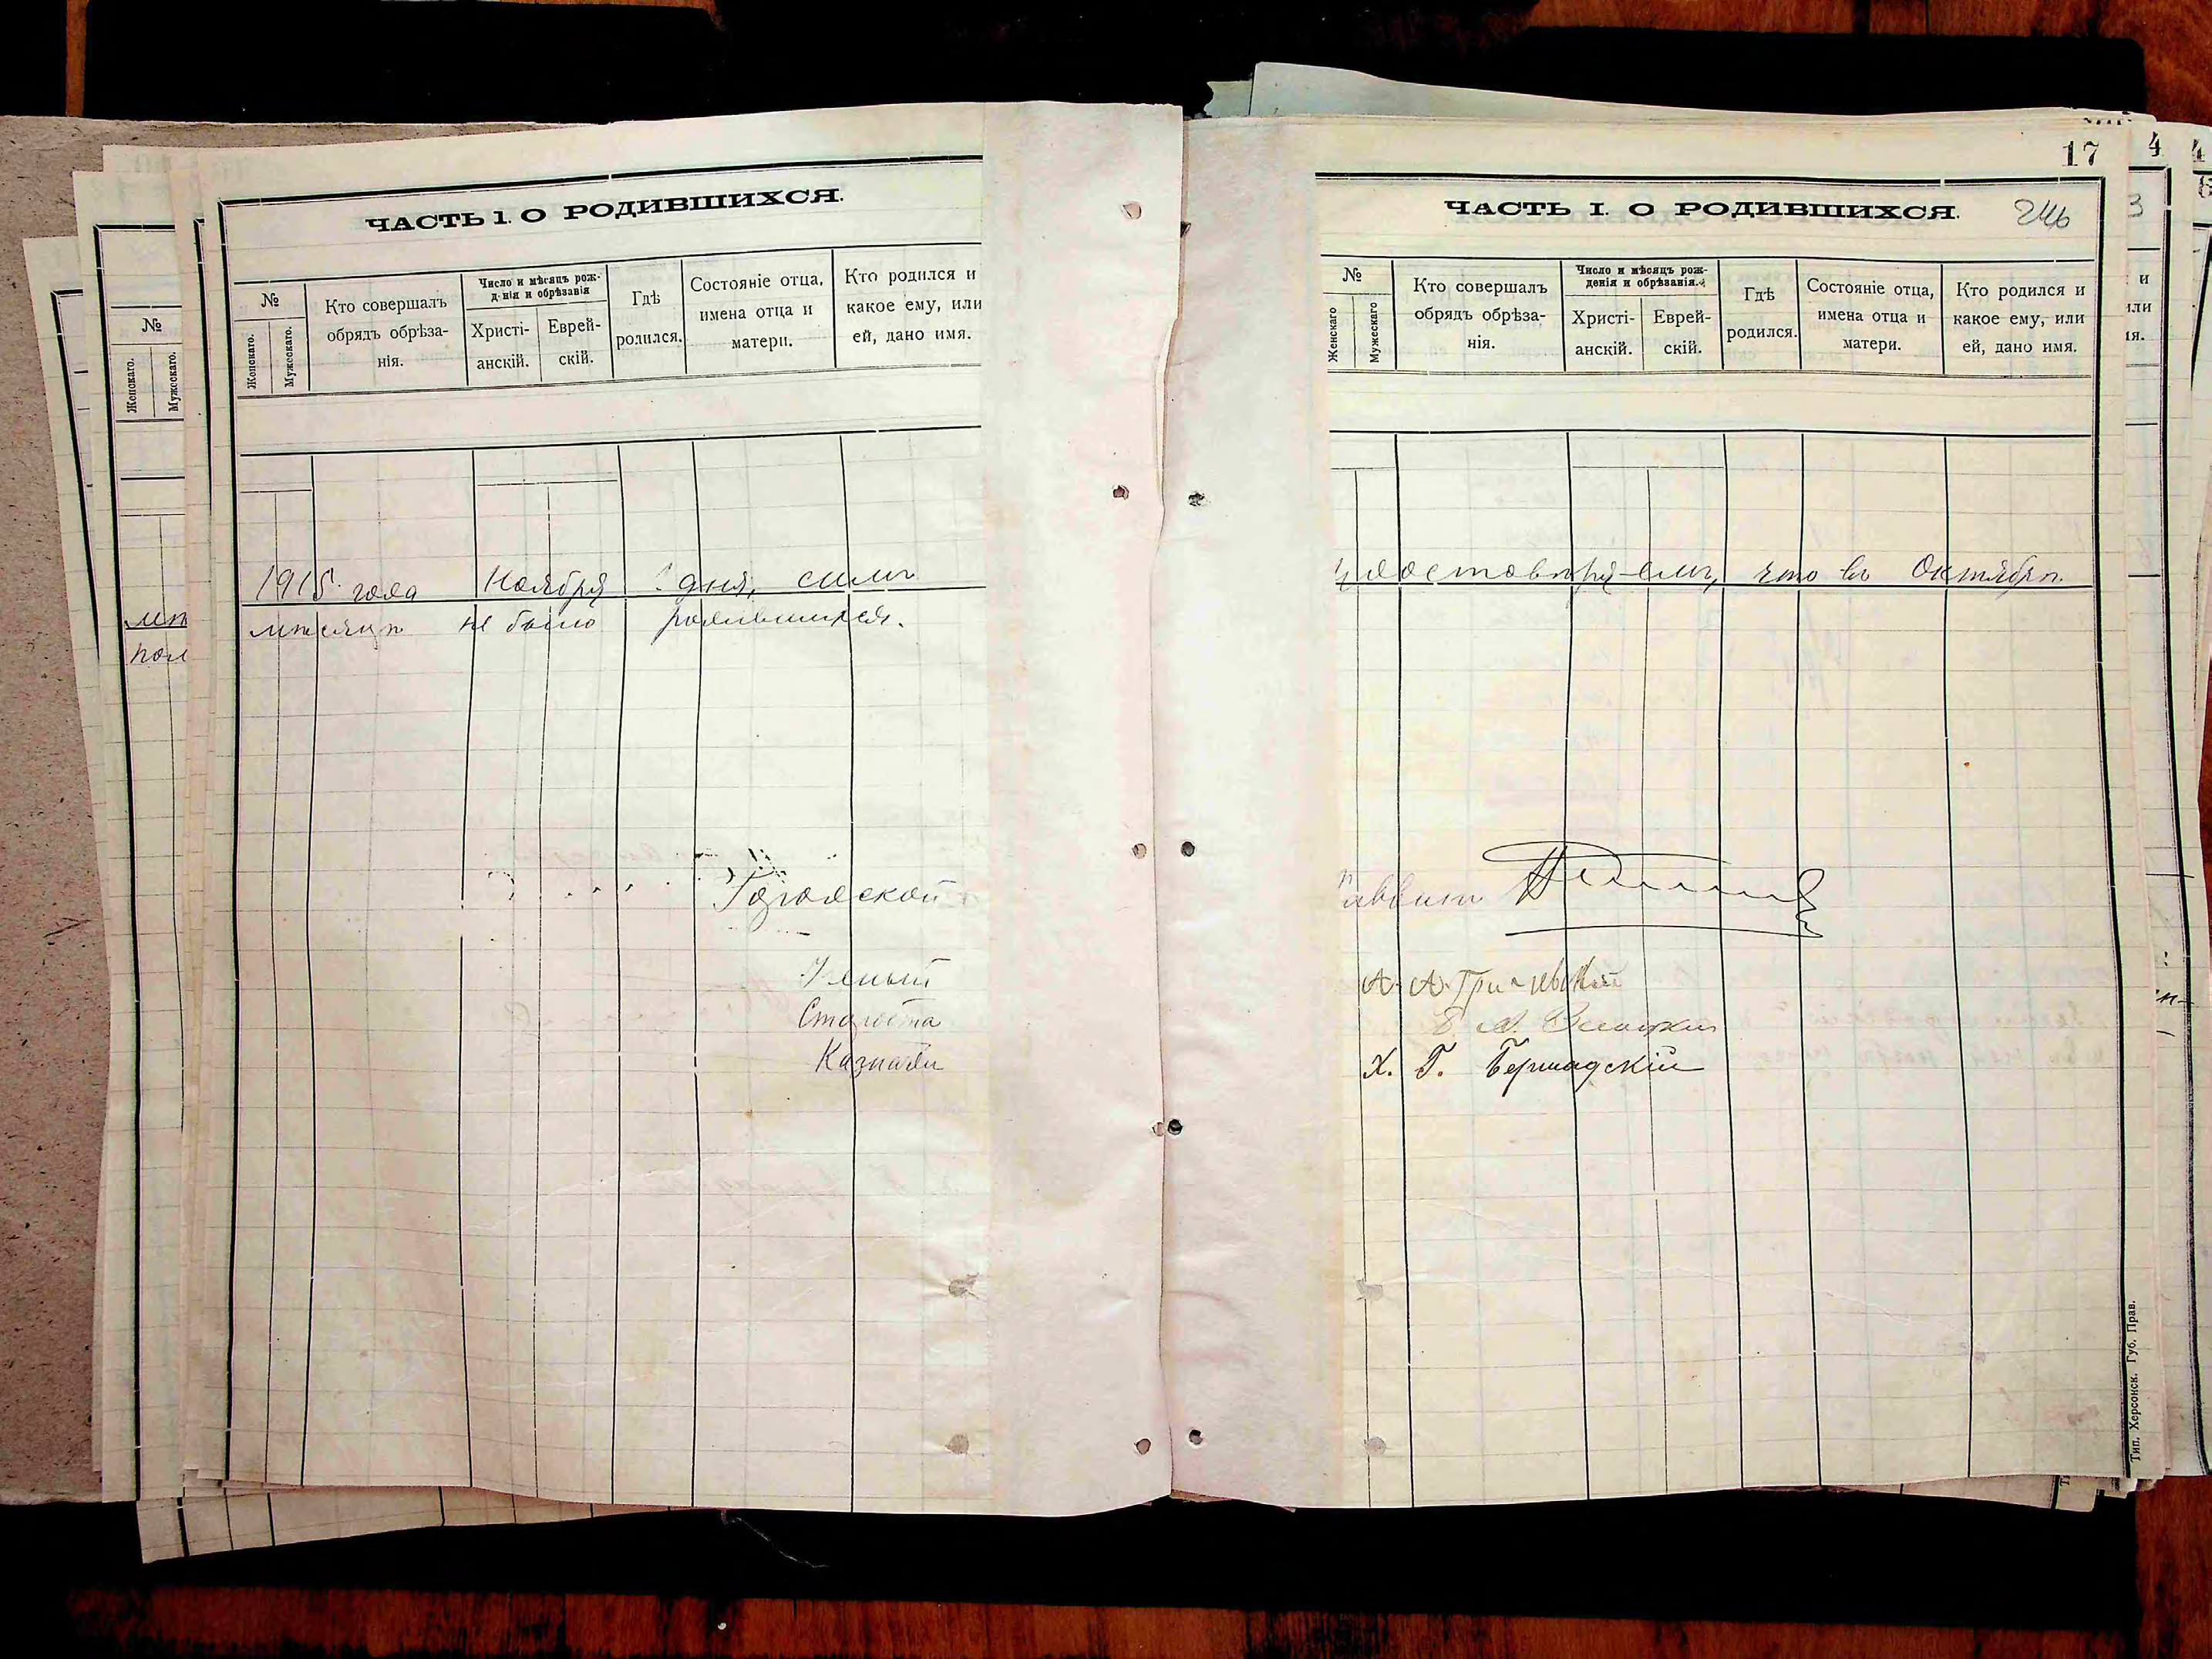 ЧАСТЬ 1. О РОДИВШИХСЯ.
№
Женскаго.
Мужескаго.
Кто совершалъ
обрядъ обрѣза-
нія.
Число и мѣсяцъ рож-
д нія и обрѣзанія
Христі-
анскій.
Еврей-
скій.
Гдѣ
родился.
Состояніе отца,
имена отца и
матери.
Кто родился и
какое ему, или
ей, дано имя.
1915 года Ноября 1 дня, симъ
мѣсяцѣ не было родившихся.
Городской
Ученый
Староста
Казначей
№
Женскаго.
Мужескаго.
мѣ
пол
17
ЧАСТЬ I. О РОДИВШИХСЯ.
246
№
Женскаго
Мужескаго
Кто совершалъ
обрядъ обрѣза-
нія.
Число и мѣсяцъ рож-
денія и обрѣзанія.
Христі-
анскій.
Еврей-
скій.
Гдѣ
родился.
Состояніе отца,
имена отца и
матери.
Кто родился и
какое ему, или
ей, дано имя.
удостовѣряемъ, что въ Октябрѣ
Раввинъ
А. А.
Х. Г. Бершадскій
Тип. Херсонск. Губ. Прав.
4
3
и
или
ія.
4